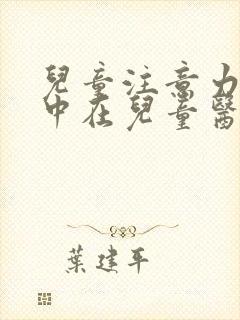 兒童注意力
中在兒童醫
葉建平